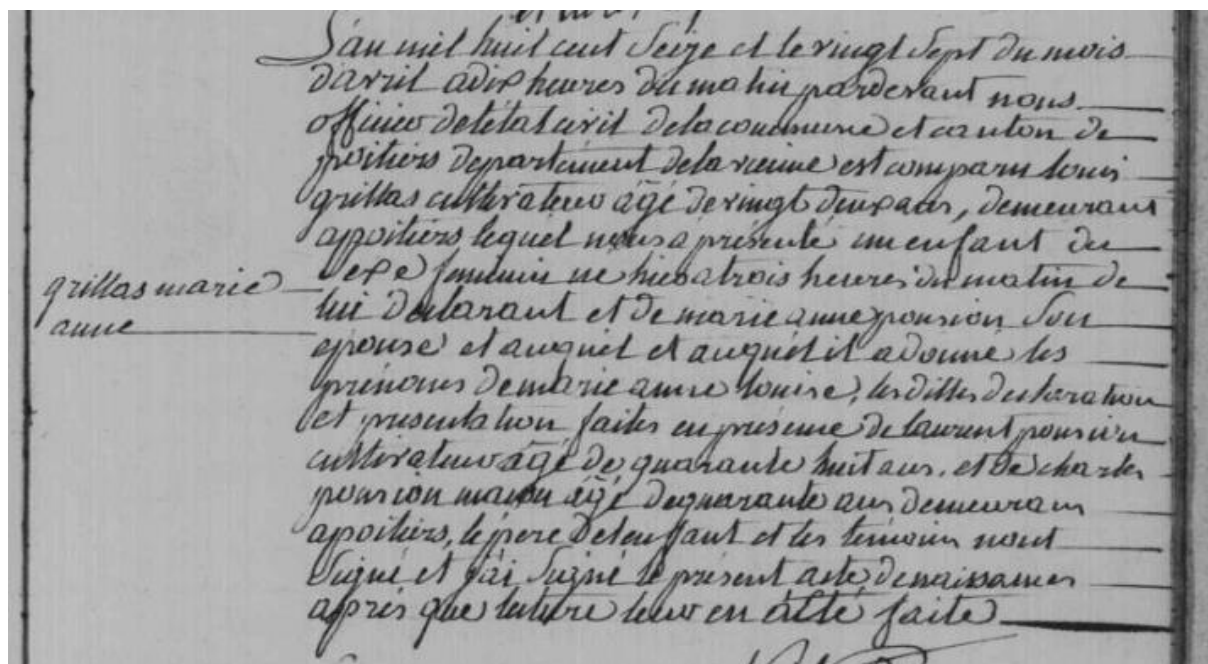 L'an mil huit cent Seize et le vingt Sept du mois
d'avril a dix heures du matin pardevant nous
officier de létat civil de la commune et canton de
poitiers departement de la vienne est comparu louis
grillas cultivateur âgé de vingt deux ans, demeurant
a poitiers lequel nous a présenté un enfant du
Sexe feminin né hier a trois heures du matin de
grillas marie
anne
lui declarant et de marie anne ponsion Son
epouse et auquel et auquel il a donné les
prénoms de marie anne louise, les dittes declaration
et presentation faites en présence de laurent ponsion
cultivateur âgé de quarante huit ans. et de charles
ponsion maçon âgé de quarante ans demeurans
a poitiers, le pere de lenfant et les témoins n'ont
Signé et j'ai Signé le présent acte de naissances
après que lecture leur en a été faite